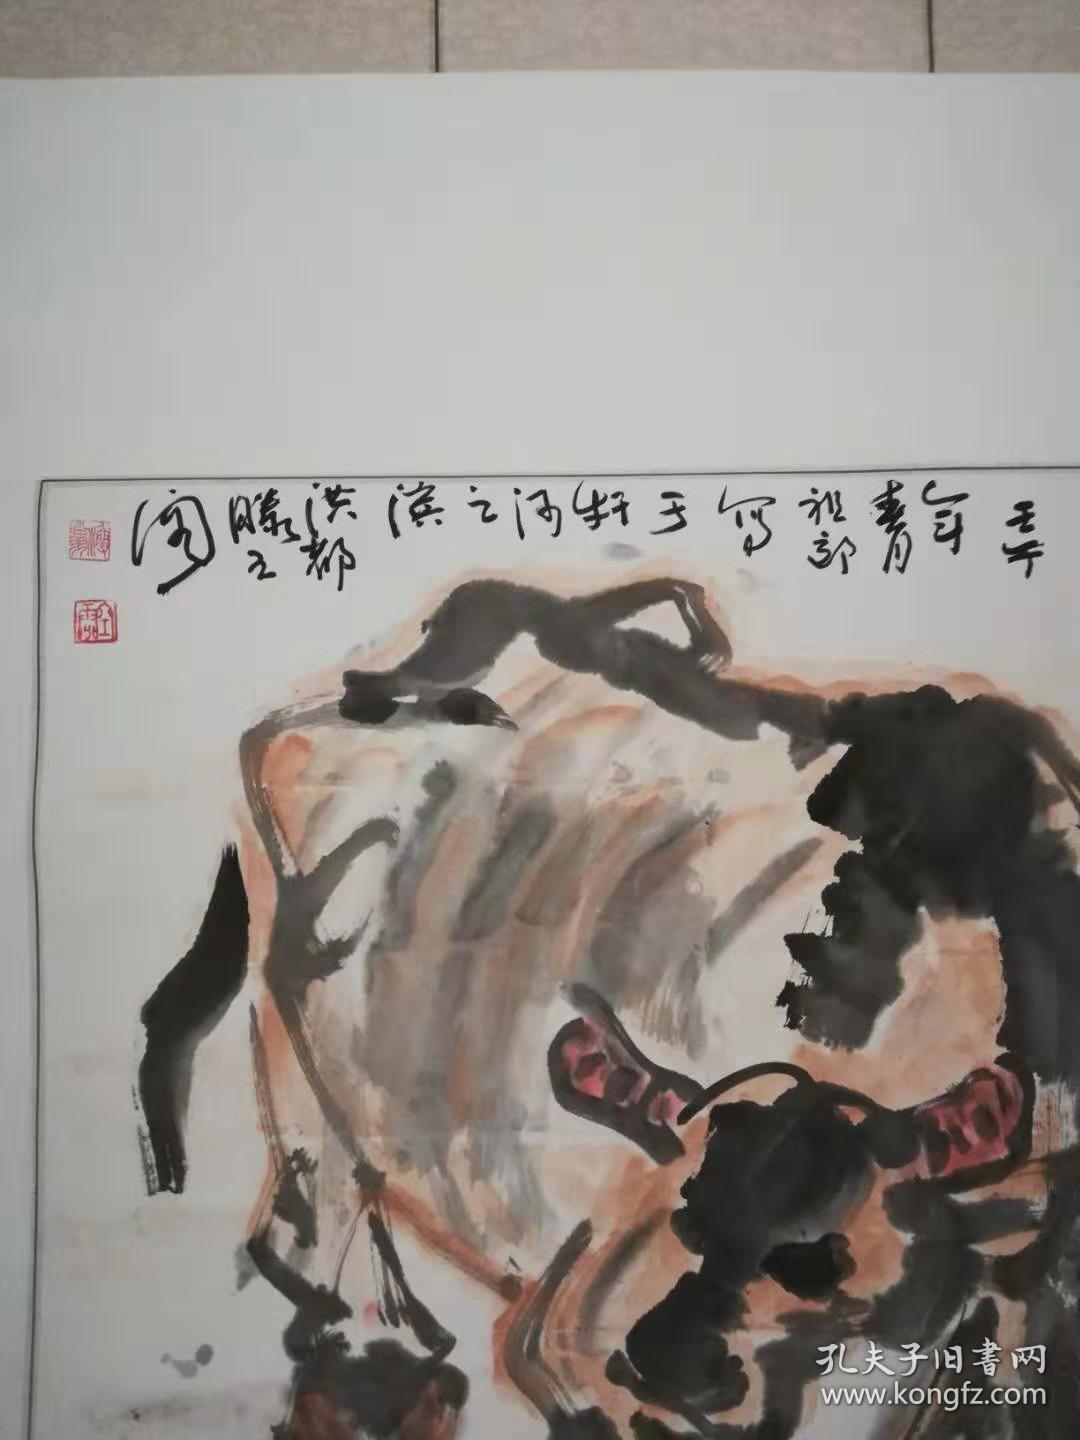 壬午
年
青
祖
写
于
轩
河
之
滨
洪都
滕王
阁
孔夫子旧書网
www.kongfz.com